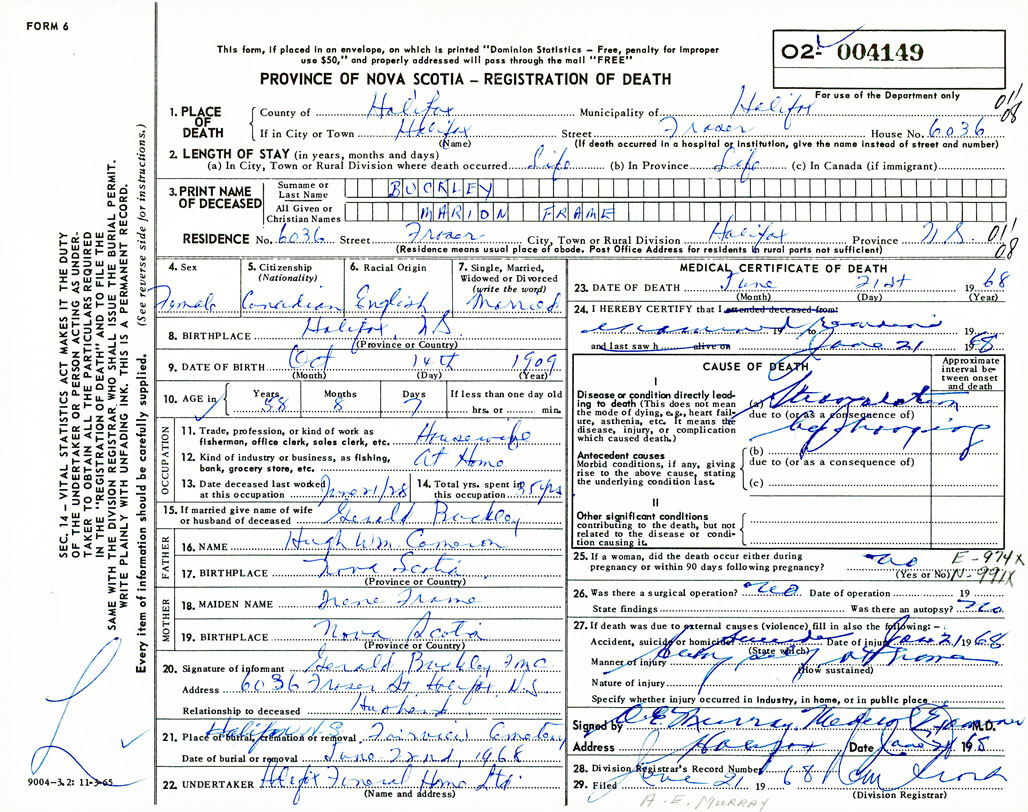 FORM 6
This form, if placed in an envelope, on which is printed "Dominion Statistics – Free, penalty for improper
use $50," and properly addressed will pass through the mail "FREE"
PROVINCE OF NOVA SCOTIA – REGISTRATION OF DEATH
02- 004149
For use of the Department only
01/08
1. PLACE OF DEATH
County of Halifax Municipality of Halifax
If in City or Town Halifax Street Fraser House No. 6036
(Name) (If death occurred in a hospital or institution, give the name instead of street and number)
2. LENGTH OF STAY (in years, months and days)
(a) In City, Town or Rural Division where death occurred Life (b) In Province Life (c) In Canada (if immigrant)
3. PRINT NAME OF DECEASED
Surname or Last Name BUCKLEY
All Given or Christian Names MARION FRAME
RESIDENCE No. 6036 Street Fraser City, Town or Rural Division Halifax Province N.S. 01/08
(Residence means usual place of abode. Post Office Address for residents in rural parts not sufficient)
4. Sex Female
5. Citizenship (Nationality) Canadian
6. Racial Origin English
7. Single, Married, Widowed or Divorced (write the word) Married
8. BIRTHPLACE Halifax, N.S.
(Province or Country)
9. DATE OF BIRTH Oct 14th 1909
(Month) (Day) (Year)
10. AGE in Years 58 Months 8 Days 7 If less than one day old hrs. or min.
OCCUPATION
11. Trade, profession, or kind of work as fisherman, office clerk, sales clerk, etc. Housewife
12. Kind of industry or business, as fishing, bank, grocery store, etc. At Home
13. Date deceased last worked at this occupation June 21/28
14. Total yrs. spent in this occupation 35 yrs
15. If married give name of wife or husband of deceased Gerald Buckley
FATHER
16. NAME Hugh Wm Cameron
17. BIRTHPLACE Nova Scotia
(Province or Country)
MOTHER
18. MAIDEN NAME Irene Frame
19. BIRTHPLACE Nova Scotia
(Province or Country)
20. Signature of informant Gerald Buckley
Address 6036 Fraser St Halifax, N.S
Relationship to deceased Husband
21. Place of burial, cremation or removal Halifax N.S. Fairview Cemetery
Date of burial or removal June 22nd, 1968
22. UNDERTAKER Halifax Funeral Home Ltd.
(Name and address)
MEDICAL CERTIFICATE OF DEATH
23. DATE OF DEATH June 21st 1968
(Month) (Day) (Year)
24. I HEREBY CERTIFY that I attended deceased from:
examined 19 to remains 19
and last saw h alive on June 21 1968
CAUSE OF DEATH
Approximate interval between onset and death
I
Disease or condition directly leading to death (This does not mean the mode of dying, e.g., heart failure, asthenia, etc. It means the disease, injury, or complication which caused death.)
(a) Strangulation
due to (or as a consequence of)
by hanging
Antecedent causes
Morbid conditions, if any, giving rise to the above cause, stating the underlying condition last.
(b)
due to (or as a consequence of)
(c)
II
Other significant conditions contributing to the death, but not related to the disease or condition causing it.
25. If a woman, did the death occur either during pregnancy or within 90 days following pregnancy? no
(Yes or No)
E-974X
N-991X
26. Was there a surgical operation? no Date of operation 19
State findings Was there an autopsy? no
27. If death was due to external causes (violence) fill in also the following: –
Accident, suicide or homicide Suicide Date of injury June 21 1968
(State which)
Manner of injury at home
(How sustained)
Nature of injury
Specify whether injury occurred in Industry, in home, or in public place
Signed by A.E. Murray Medical Examiner M.D.
Address Halifax Date June 21 1968
28. Division Registrar's Record Number
29. Filed June 21 1968
(Division Registrar)
A. E. MURRAY
SEC. 14 – VITAL STATISTICS ACT MAKES IT THE DUTY
OF THE UNDERTAKER OR PERSON ACTING AS UNDER-
TAKER TO OBTAIN ALL THE PARTICULARS REQUIRED
IN THE "REGISTRATION OF DEATH" AND TO FILE THE
SAME WITH THE DIVISION REGISTRAR WHO SHALL ISSUE THE BURIAL PERMIT.
WRITE PLAINLY WITH UNFADING INK. THIS IS A PERMANENT RECORD.
Every item of information should be carefully supplied. (See reverse side for instructions.)
9004–3.2: 11-3-65